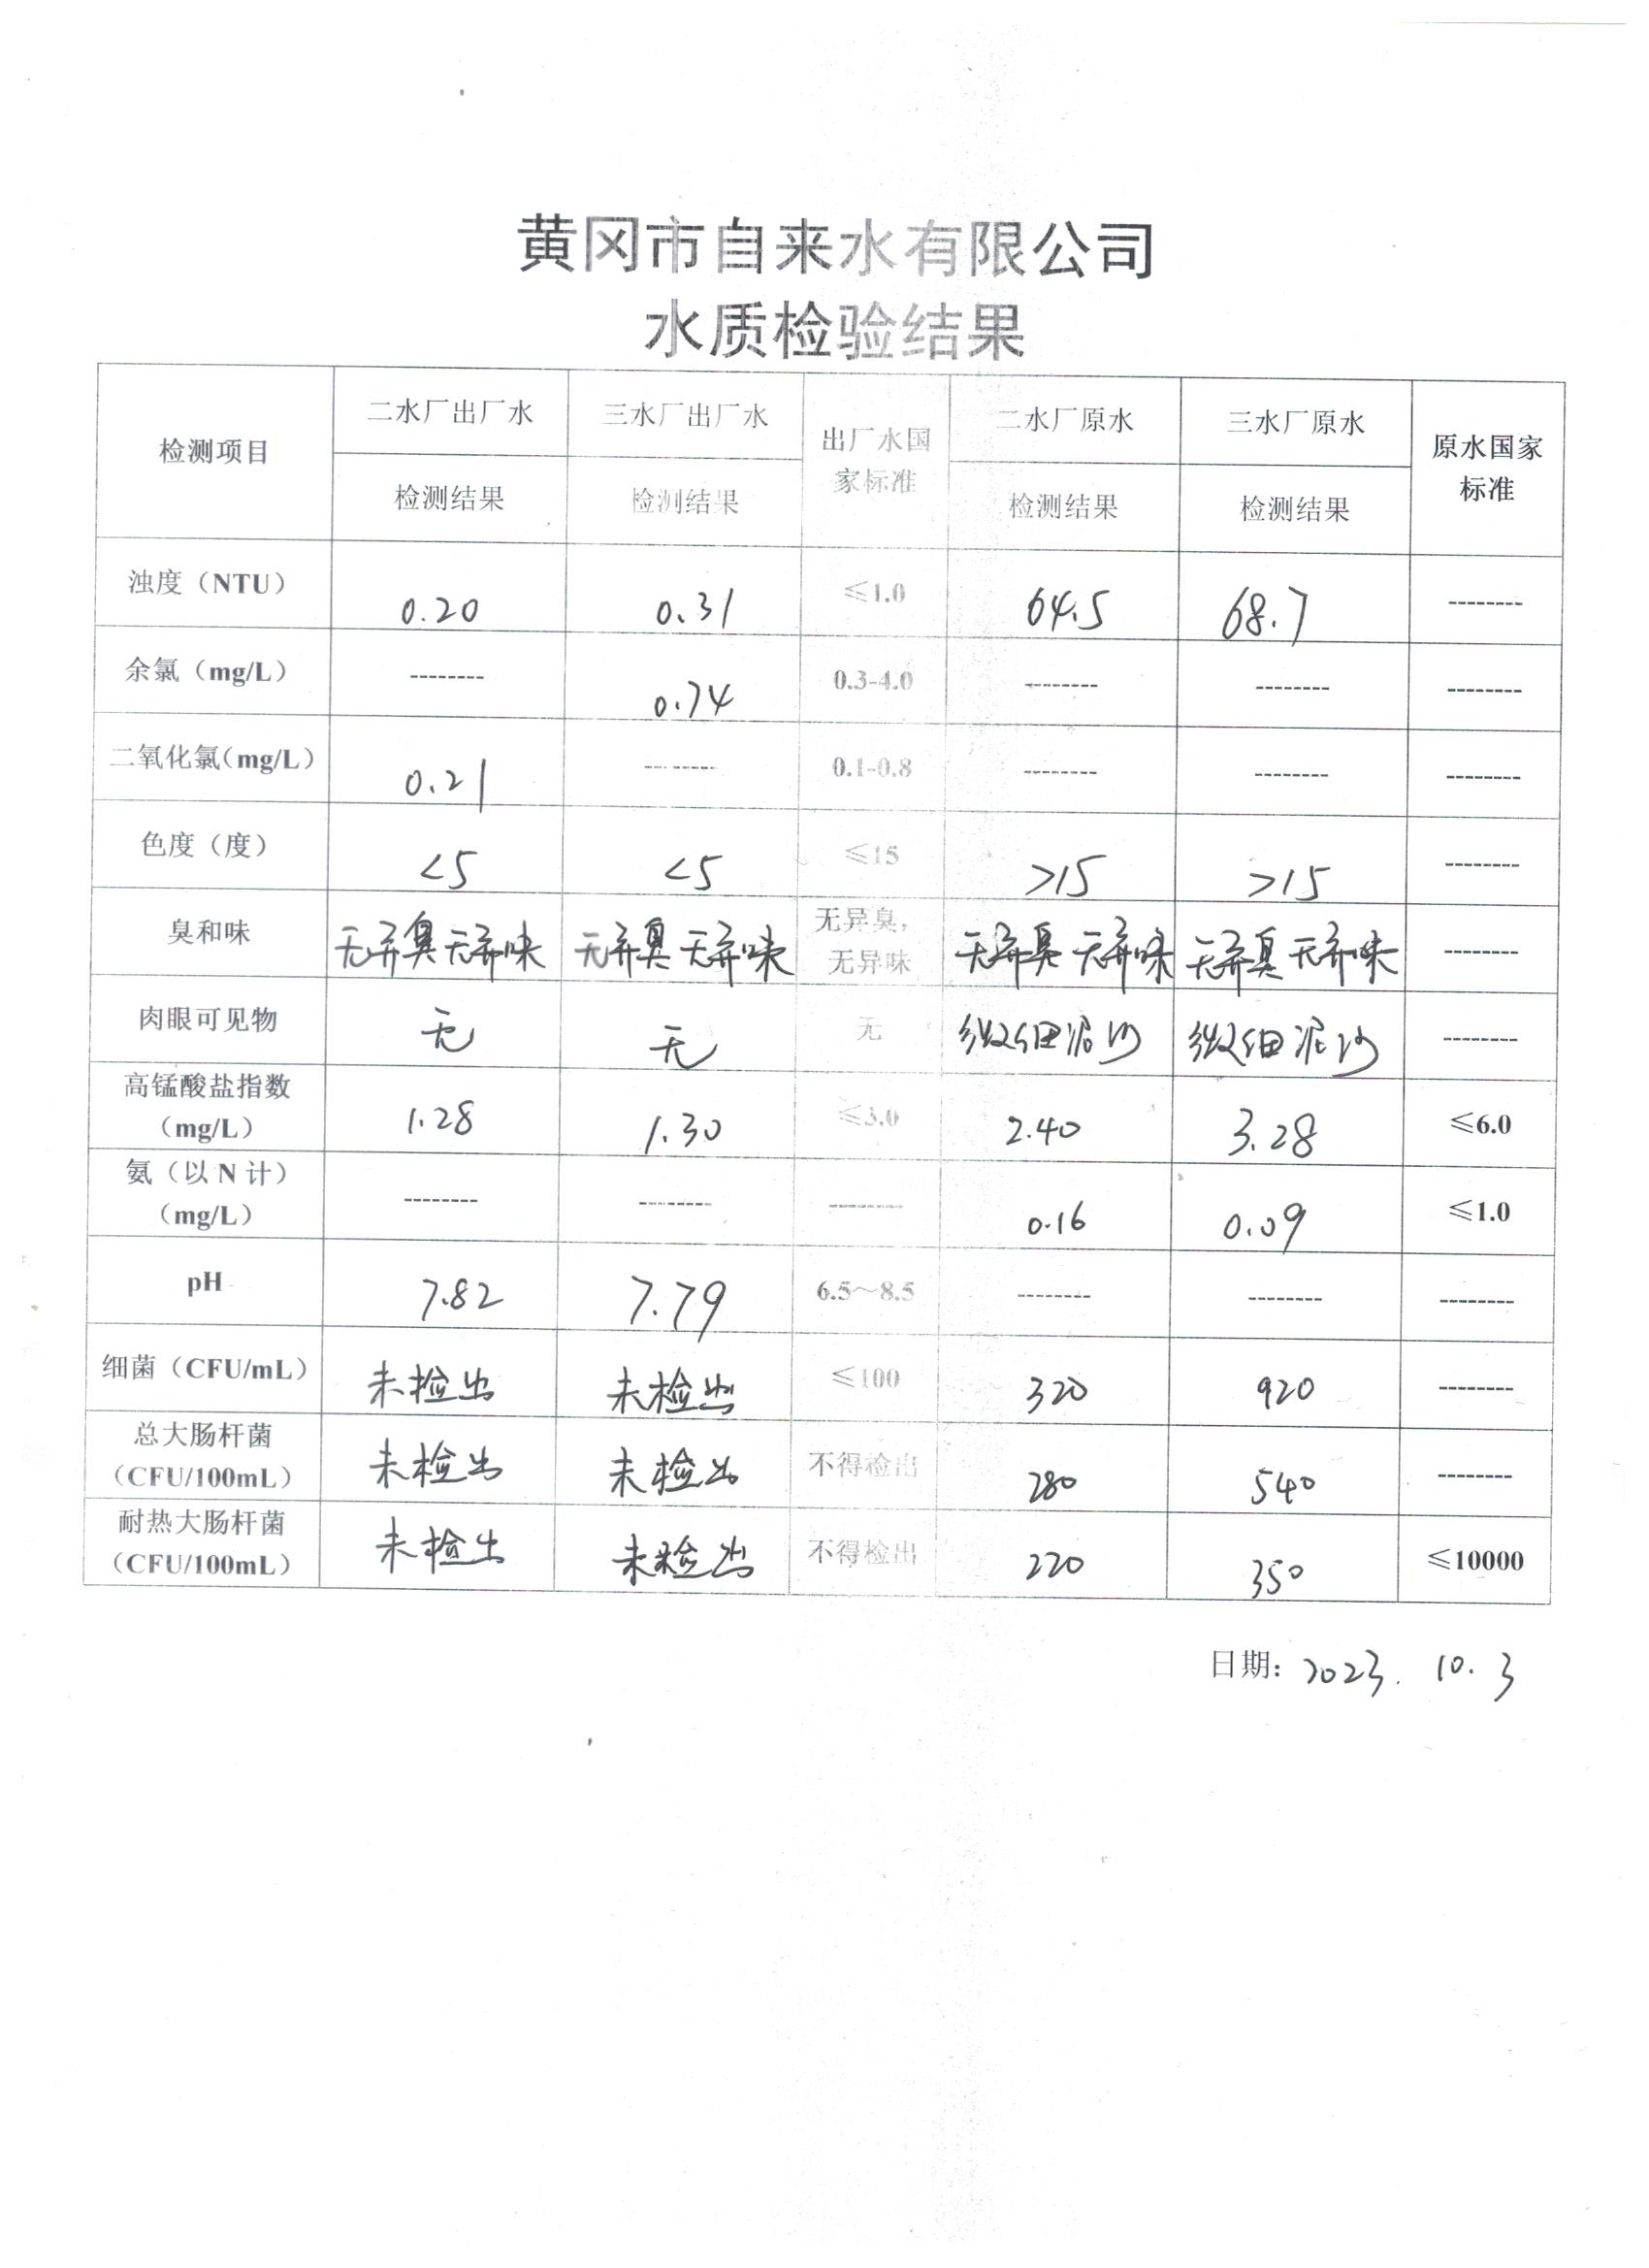 黄冈市自来水有限公司
水质检验结果
检测项目 二水厂出厂水 三水厂出厂水 出厂水国家标准 二水厂原水 三水厂原水 原水国家标准
检测结果 检测结果 检测结果 检测结果
浊度（NTU） 0.20 0.31 ≤1.0 64.5 68.7 --------
余氯（mg/L） -------- 0.74 0.3-4.0 -------- -------- --------
二氧化氯（mg/L） 0.21 -------- 0.1-0.8 -------- -------- --------
色度（度） <5 <5 ≤15 >15 >15 --------
臭和味 无异臭无异味 无异臭无异味 无异臭，无异味 无异臭无异味 无异臭无异味 --------
肉眼可见物 无 无 无 微细泥沙 微细泥沙 --------
高锰酸盐指数（mg/L） 1.28 1.30 ≤3.0 2.40 3.28 ≤6.0
氨（以N计）（mg/L） -------- -------- -------- 0.16 0.09 ≤1.0
pH 7.82 7.79 6.5～8.5 -------- -------- --------
细菌（CFU/mL） 未检出 未检出 ≤100 320 920 --------
总大肠杆菌（CFU/100mL） 未检出 未检出 不得检出 280 540 --------
耐热大肠杆菌（CFU/100mL） 未检出 未检出 不得检出 220 350 ≤10000
日期：2023.10.3